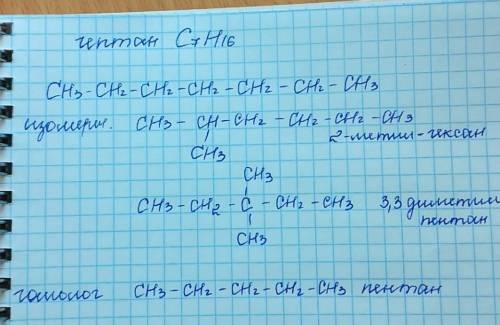 гептан C7H16
CH3-CH2-CH2-CH2-CH2-CH2-CH3
изомеры. CH3-CH-CH2-CH2-CH2-CH3
CH3 2-метил-гексан
CH3
CH3-CH2-C-CH2-CH3 3,3 диметил
CH3 пентан
гомолог CH3-CH2-CH2-CH2-CH3 пентан